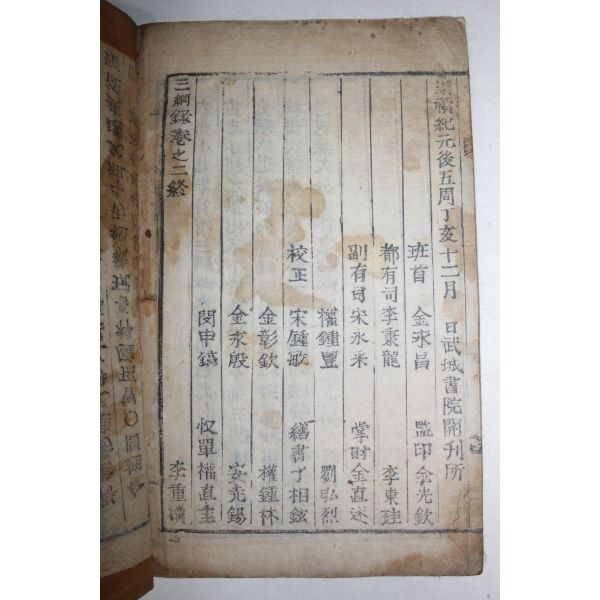 崇禎紀元後五周丁亥十二月 日武城書院開刊所
班首 金永昌 監印 金光欽
都有司 李秉龍 李東珪
副有司 宋永釆 掌財 金直述
權鍾豐 劉弘烈
校正 宋鍾敏 繕書 丁相鉉
金彰欽 權鍾林
金永殷 安尭錫
閔申鎬 收單 權直圭
李重漢
三綱錄卷之二終